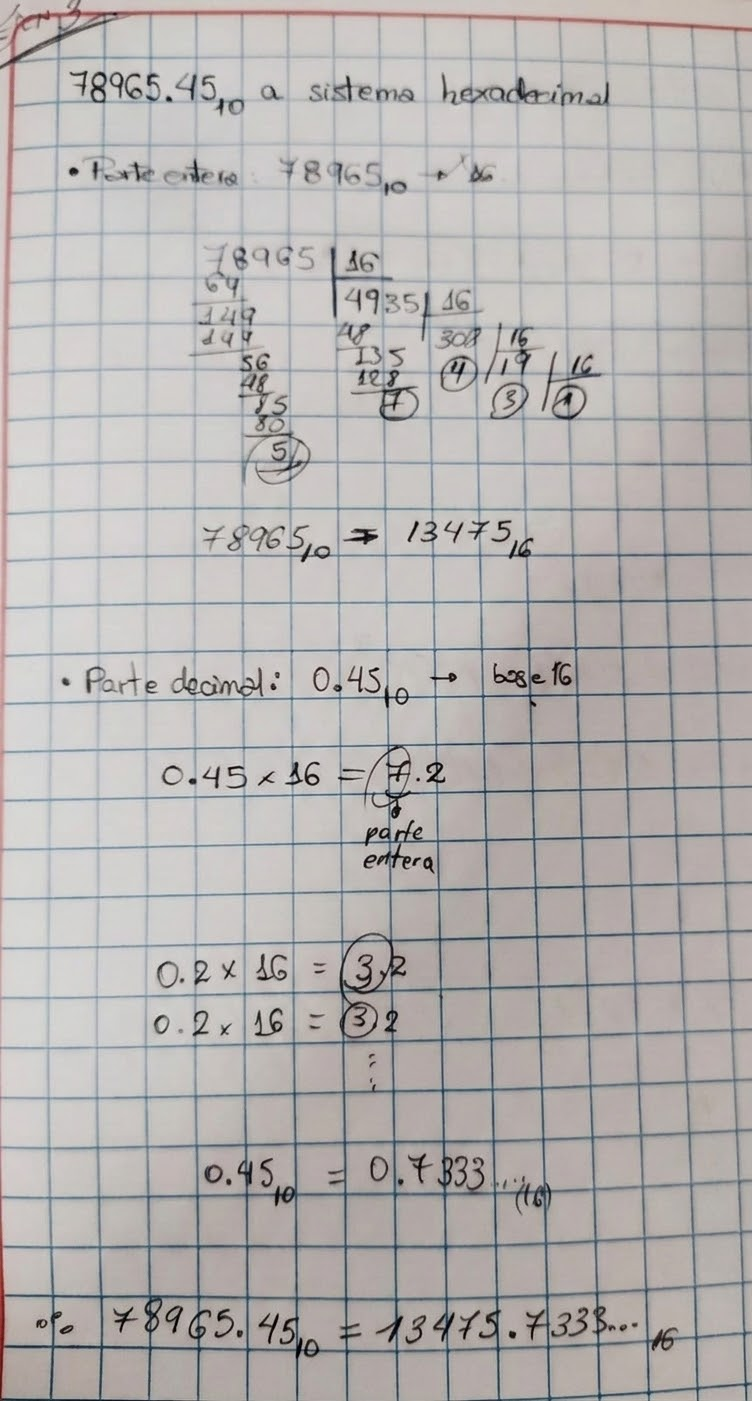 78965.45₁₀ a sistema hexadecimal
• Parte entera: 78965₁₀ → 16
78965 | 16
64 4935 | 16
149 48 308 | 16
144 135 4 19 | 16
56 128 3 1
48 7
85
80
5
78965₁₀ = 13475₁₆
• Parte decimal: 0.45₁₀ → base 16
0.45 × 16 = 7.2
parte
entera
0.2 × 16 = 3.2
0.2 × 16 = 3 2
⋮
0.45₁₀ = 0.7333....₍₁₆₎
∴ 78965.45₁₀ = 13475.7333...₁₆